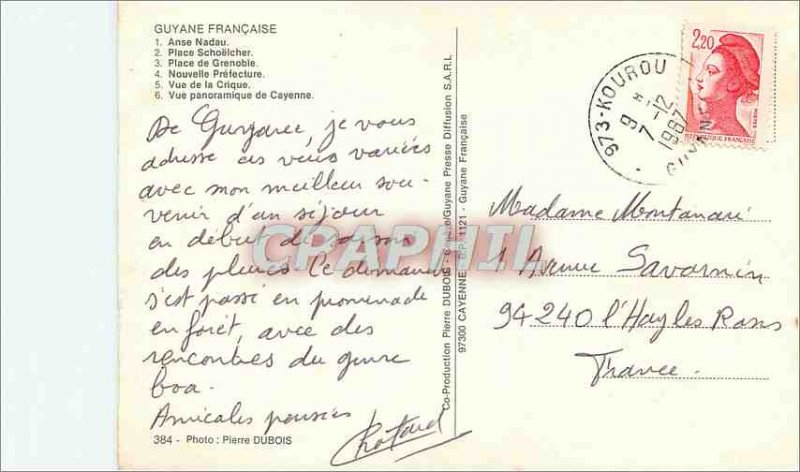 GUYANE FRANÇAISE
1. Anse Nadau.
2. Place Schoëlcher.
3. Place de Grenoble.
4. Nouvelle Préfecture.
5. Vue de la Crique.
6. Vue panoramique de Cayenne.
De Guyane, je vous
adresse ces vues variées
avec mon meilleur sou-
venir d'un séjour
en début de saison
des pluies. Ce dimanche
s'est passé en promenade
en forêt, avec des
rencontres du genre
boa.
Amicales pensées
384 - Photo : Pierre DUBOIS
Co-Production Pierre DUBOIS - Guyane Presse Diffusion S.A.R.L
97300 CAYENNE - B.P. 1121 - Guyane Française
CPAPHIL
973-KOUROU
9 H
7-12
1987
GUYANE
2,20
REPUBLIQUE FRANÇAISE
Madame Montanari
1 Avenue Savornin
94240 l'Hay les Roses
France.